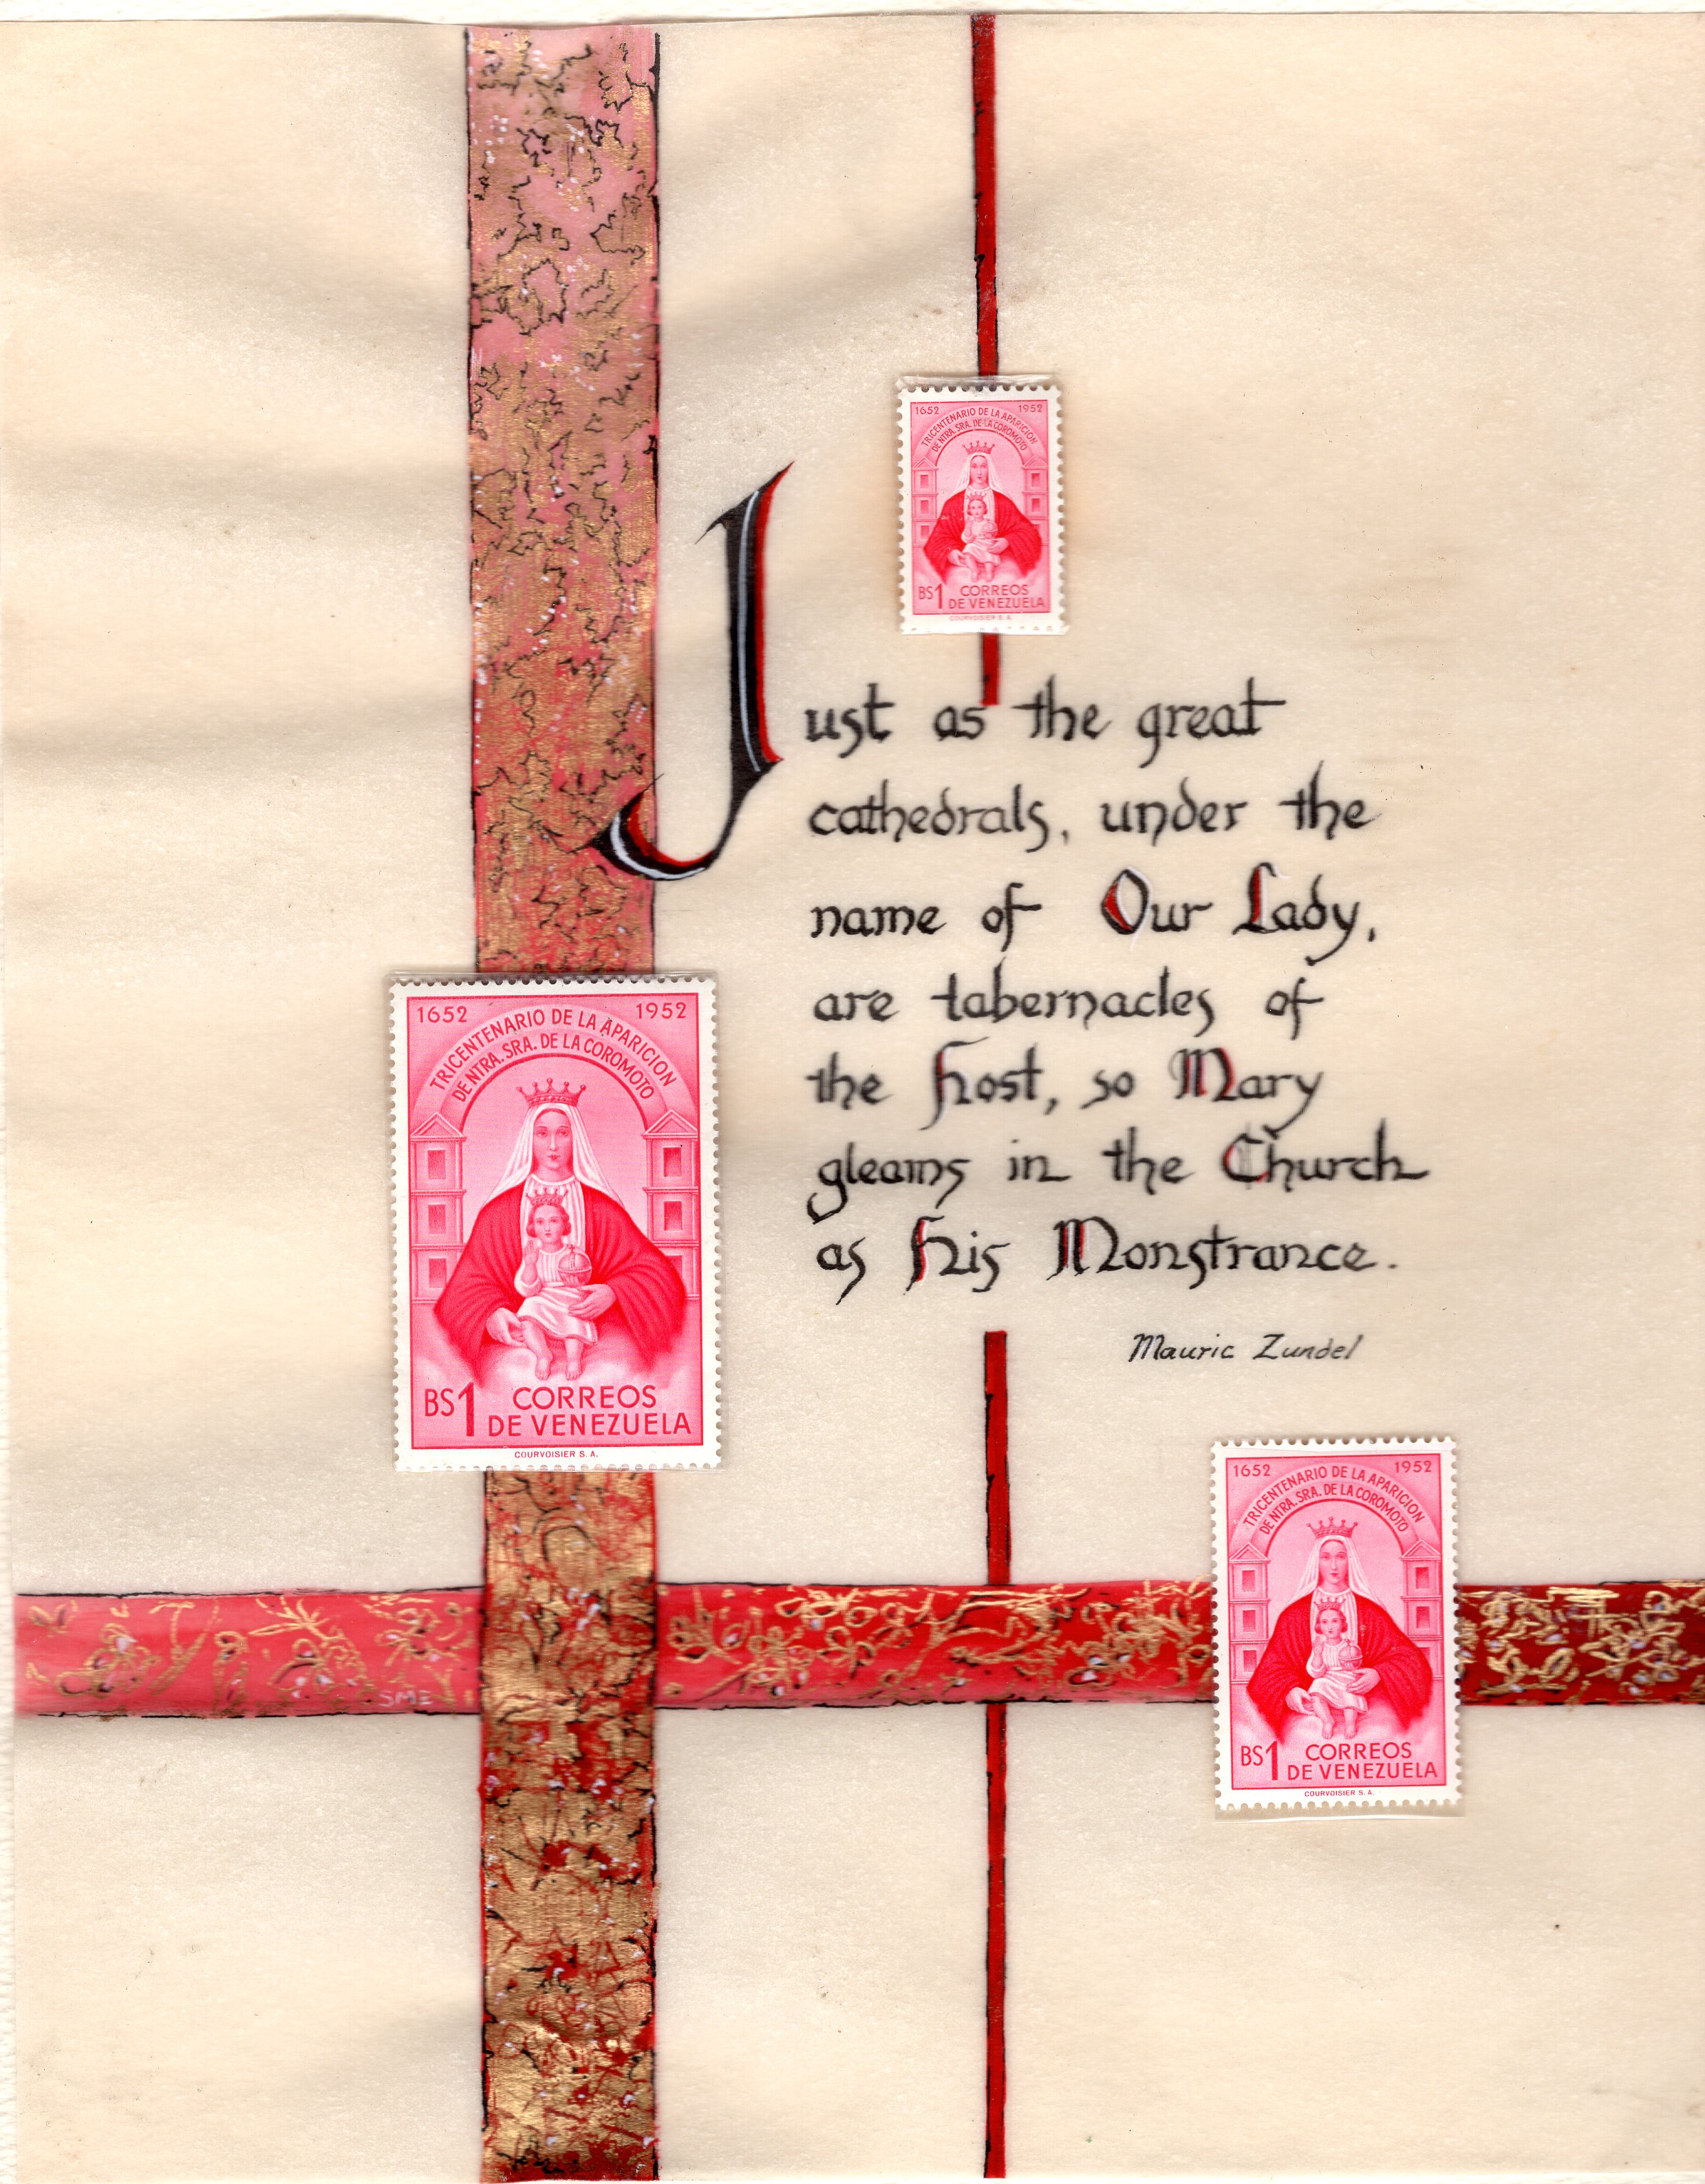 1652 1952
TRICENTENARIO DE LA APARICION
DE NTRA. SRA. DE LA COROMOTO
BS1 CORREOS
DE VENEZUELA
COURVOISIER S. A.
Just as the great
cathedrals, under the
name of Our Lady,
are tabernacles of
the Host, so Mary
gleams in the Church
as His Monstrance.
Mauric Zundel
1652 1952
TRICENTENARIO DE LA APARICION
DE NTRA. SRA. DE LA COROMOTO
BS1 CORREOS
DE VENEZUELA
COURVOISIER S. A.
1652 1952
TRICENTENARIO DE LA APARICION
DE NTRA. SRA. DE LA COROMOTO
BS1 CORREOS
DE VENEZUELA
COURVOISIER S. A.
SME